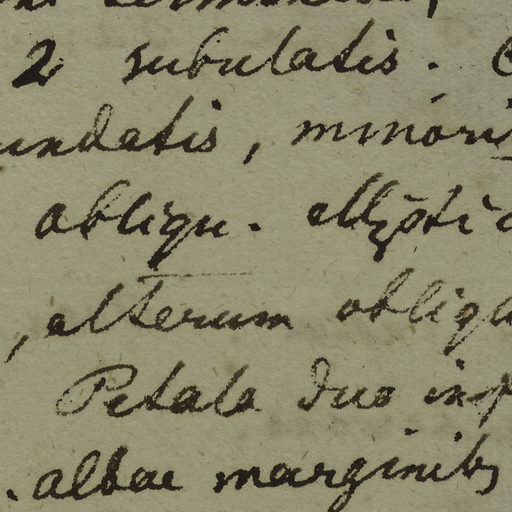 2 subulatis.
undatis, minori
obliqu. elliptic
, alterum obliqu
Petala duo insp
. albae marginibs